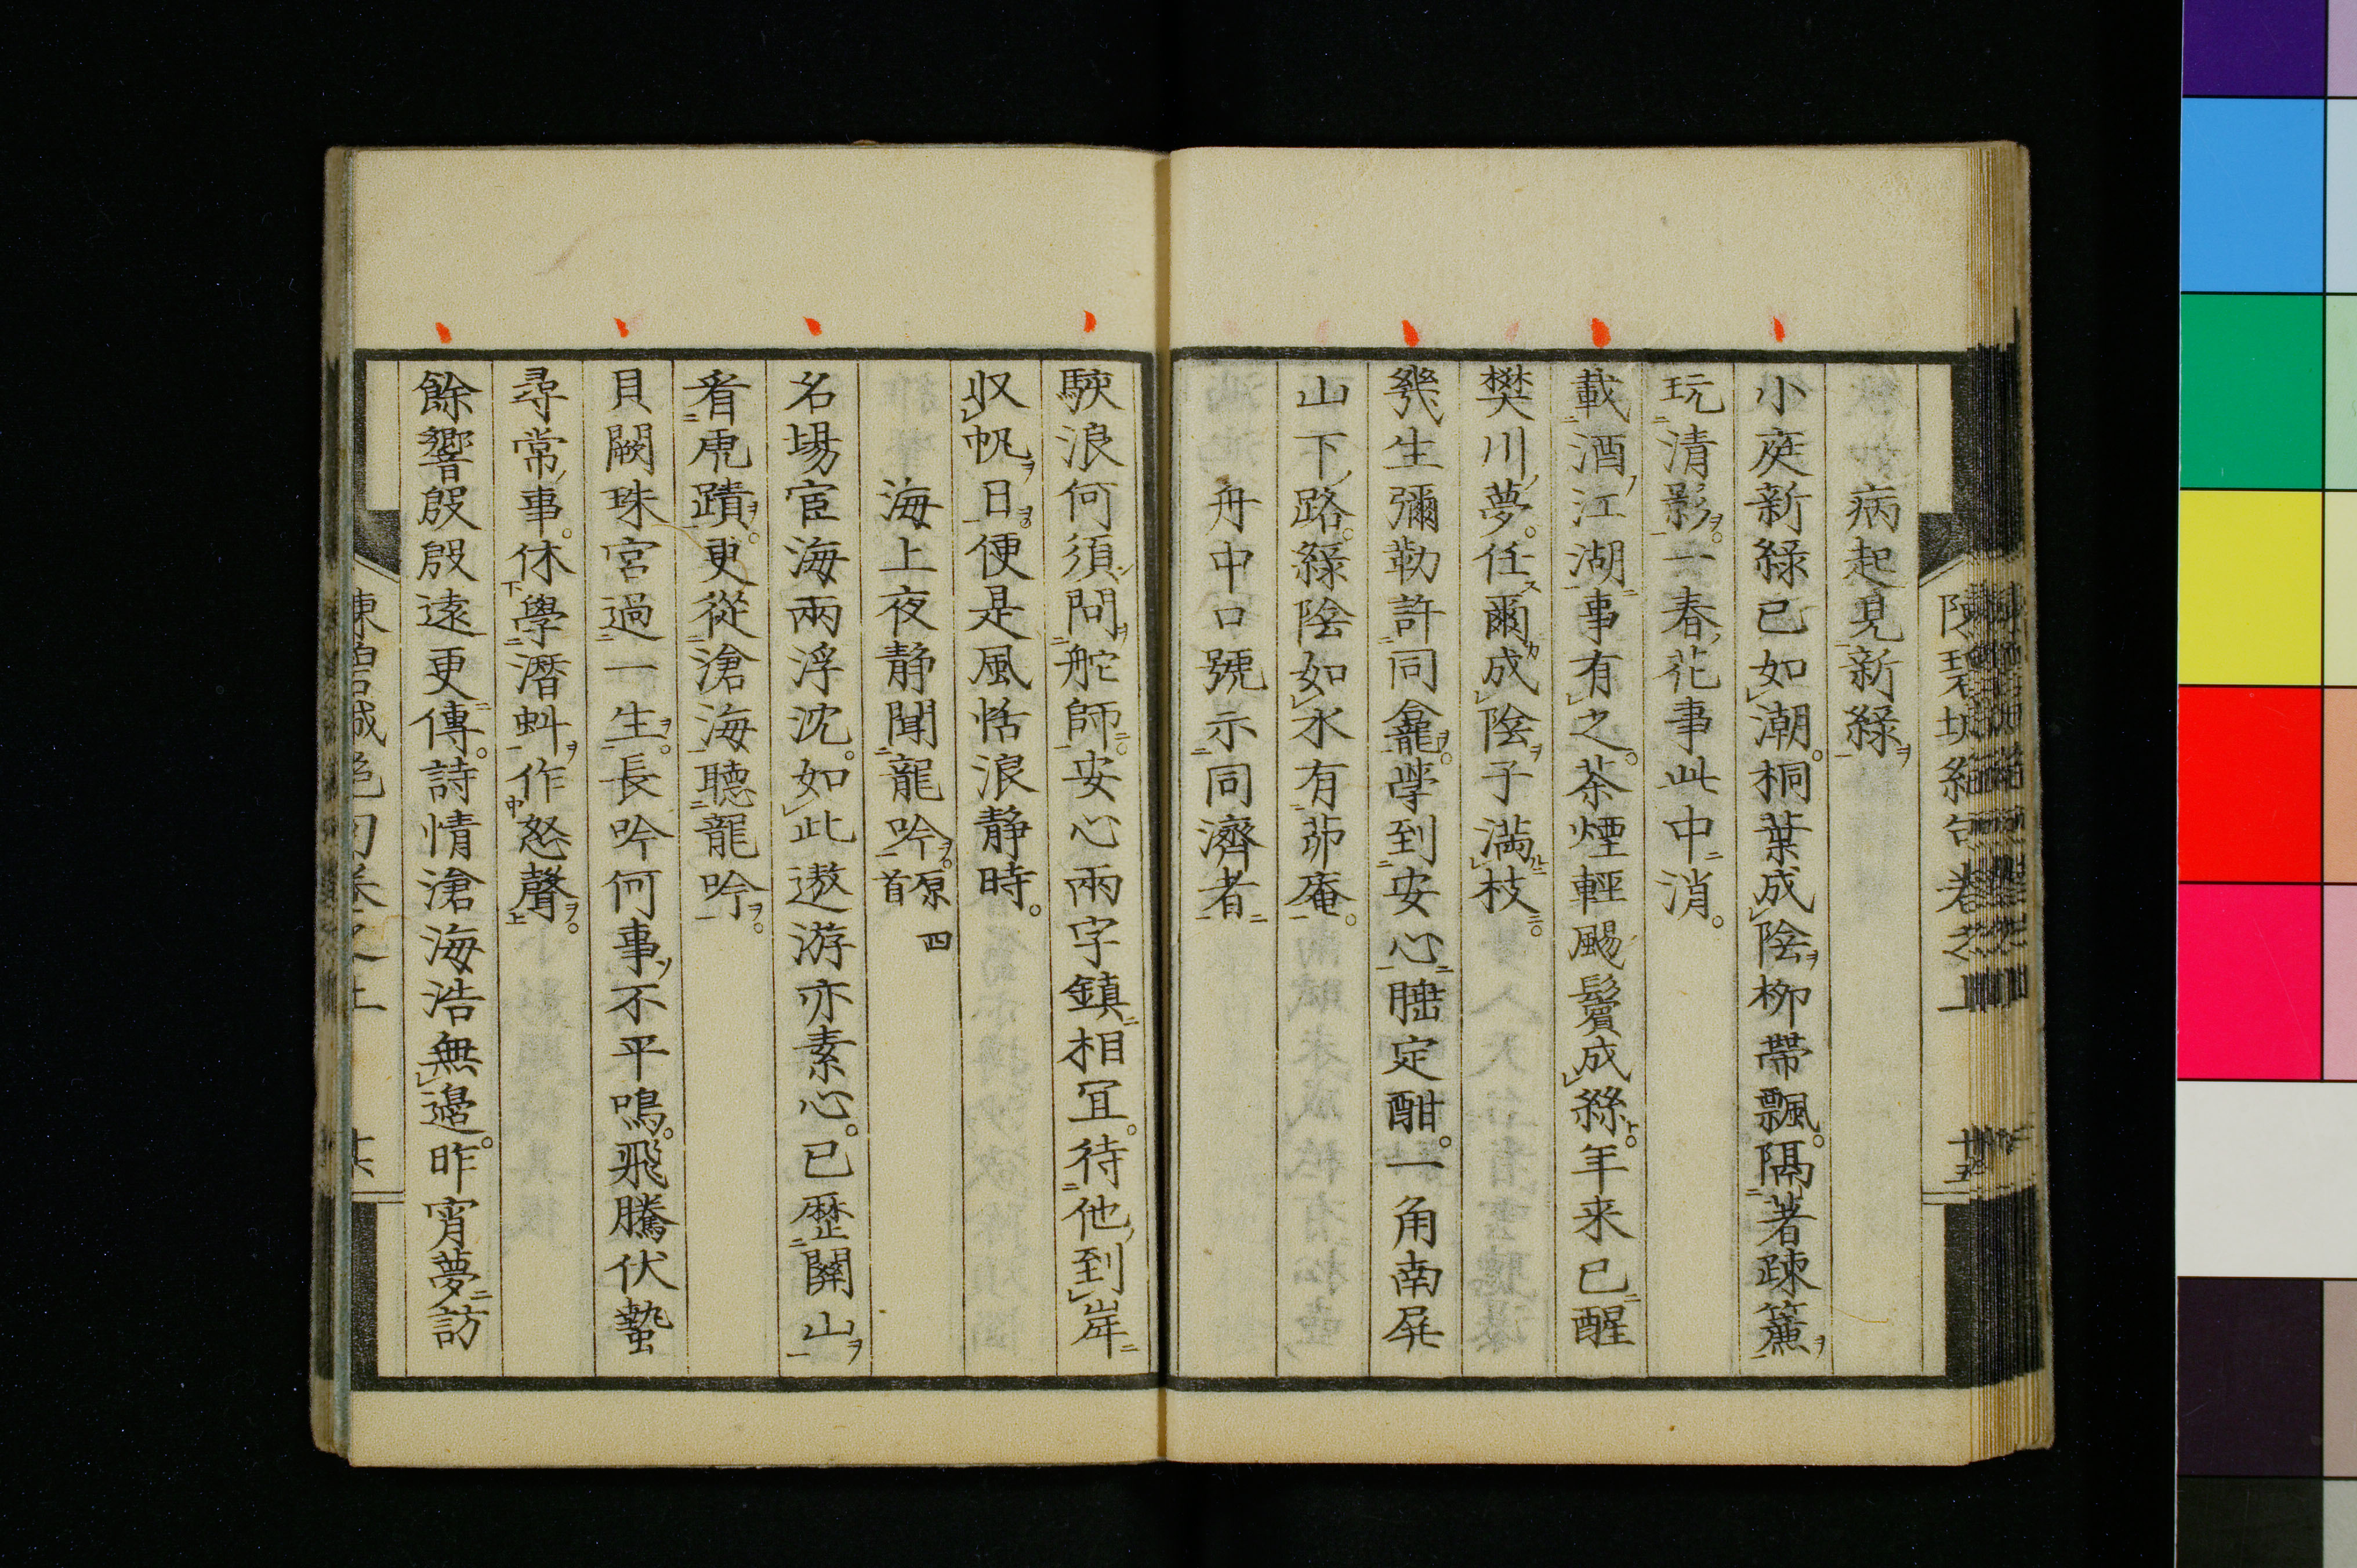 陳碧城絶句卷之上
廿五
病起見新緑
小庭新緑已如潮。桐葉成陰柳帶飄。隔著疎簾
玩清影。一春花事此中消。
載酒江湖事有之。茶煙輕颺鬢成絲。年来已醒
樊川夢。任爾成陰子滿枝。
幾生彌勒許同龕。學到安心醋定酣。一角南屏
山下路。緑陰如水有茆庵。
舟中口號示同濟者
駛浪何須問舵師。安心兩字鎮相宜。待他到岸
収帆日。便是風恬浪静時。
海上夜静聞龍吟。原四首
名場宦海兩浮沈。如此遨游亦素心。已歷關山
看虎蹟。更從滄海聽龍吟。
貝闕珠宮過一生。長吟何事不平鳴。飛騰伏蟄
尋常事。休學潛虯作怒聲。
餘響殷殷遠更傳。詩情滄海浩無邊。昨宵夢訪
陳碧城絶句卷之上